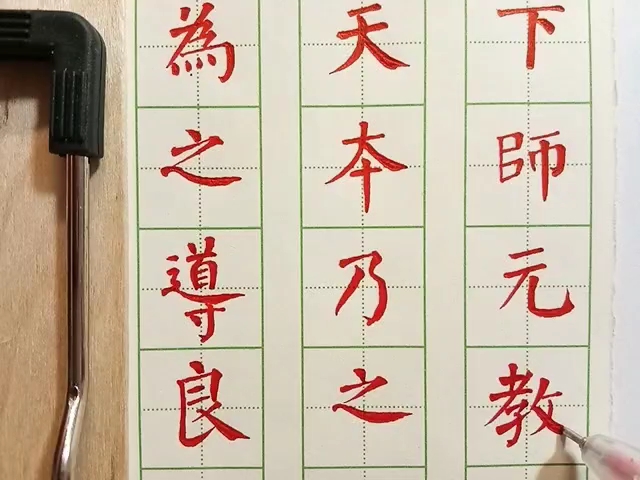 下師元教
天本乃之
為之導良